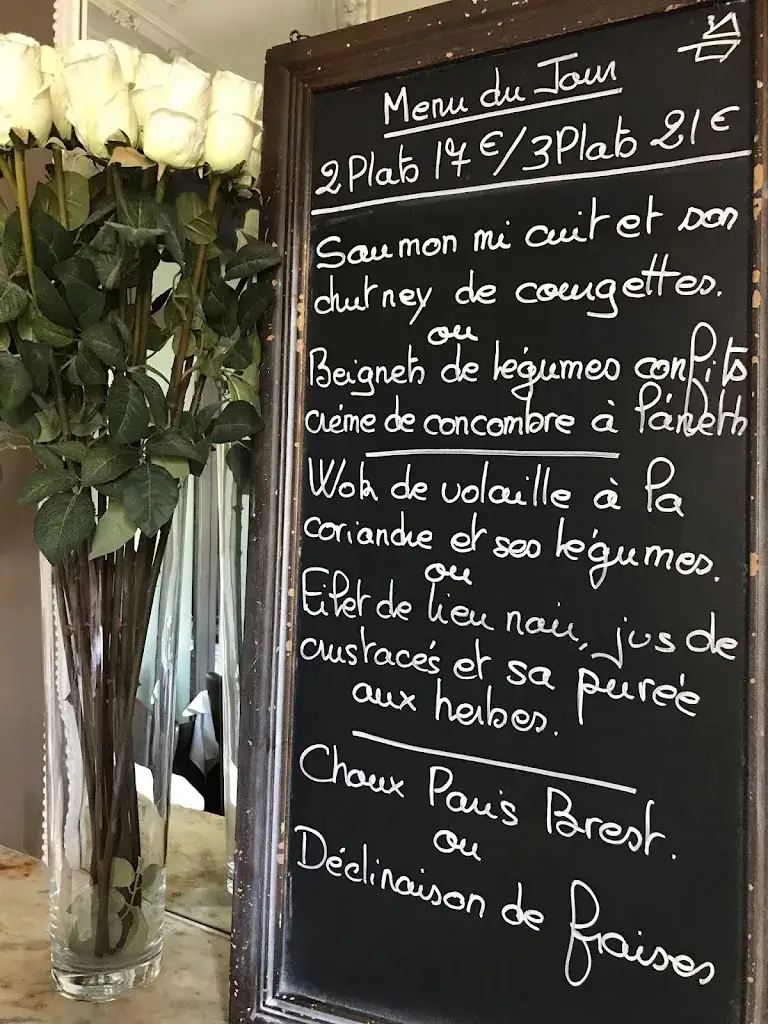 Menu du Jour
2 Plats 17 €/3 Plats 21 €
Saumon mi cuit et son
chutney de courgettes.
ou
Beignets de légumes confits
crème de concombre à l'aneth
Wok de volaille à la
coriandre et ses légumes.
ou
Filet de lieu noir, jus de
crustacés et sa purée
aux herbes.
Choux Paris Brest.
ou
Déclinaison de fraises